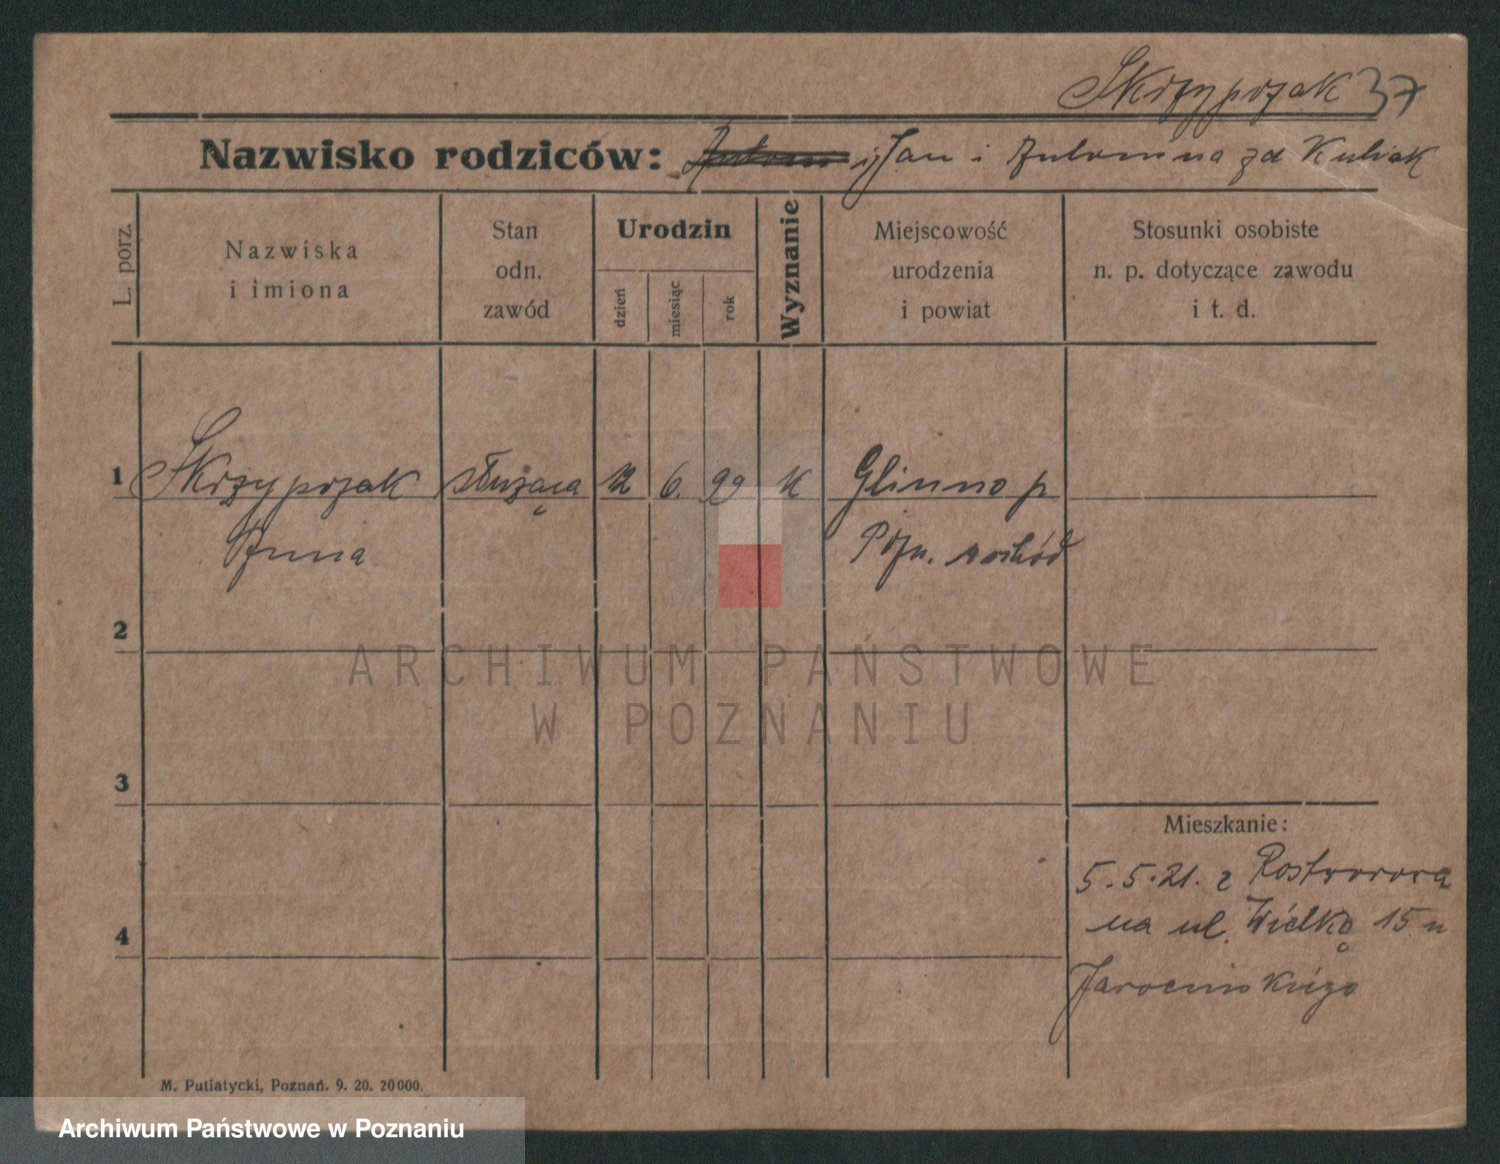 Skrzypczak 37
Nazwisko rodziców: i Jan i Antonina zd Kubiak
L. porz.
Nazwiska
i imiona
Stan
odn.
zawód
Urodzin
dzień
miesiąc
rok
Wyznanie
Miejscowość
urodzenia
i powiat
Stosunki osobiste
n. p. dotyczące zawodu
i t. d.
1 Skrzypczak służąca 12 6. 99 K Glinno p
Anna Pozn. wschód
2
3
4
Mieszkanie:
5.5.21. z
na ul. Wielką 15 u
Jarocińskiego
M. Putiatycki, Poznań. 9. 20. 20000.
ARCHIWUM PAŃSTWOWE
W POZNANIU
Archiwum Państwowe w Poznaniu